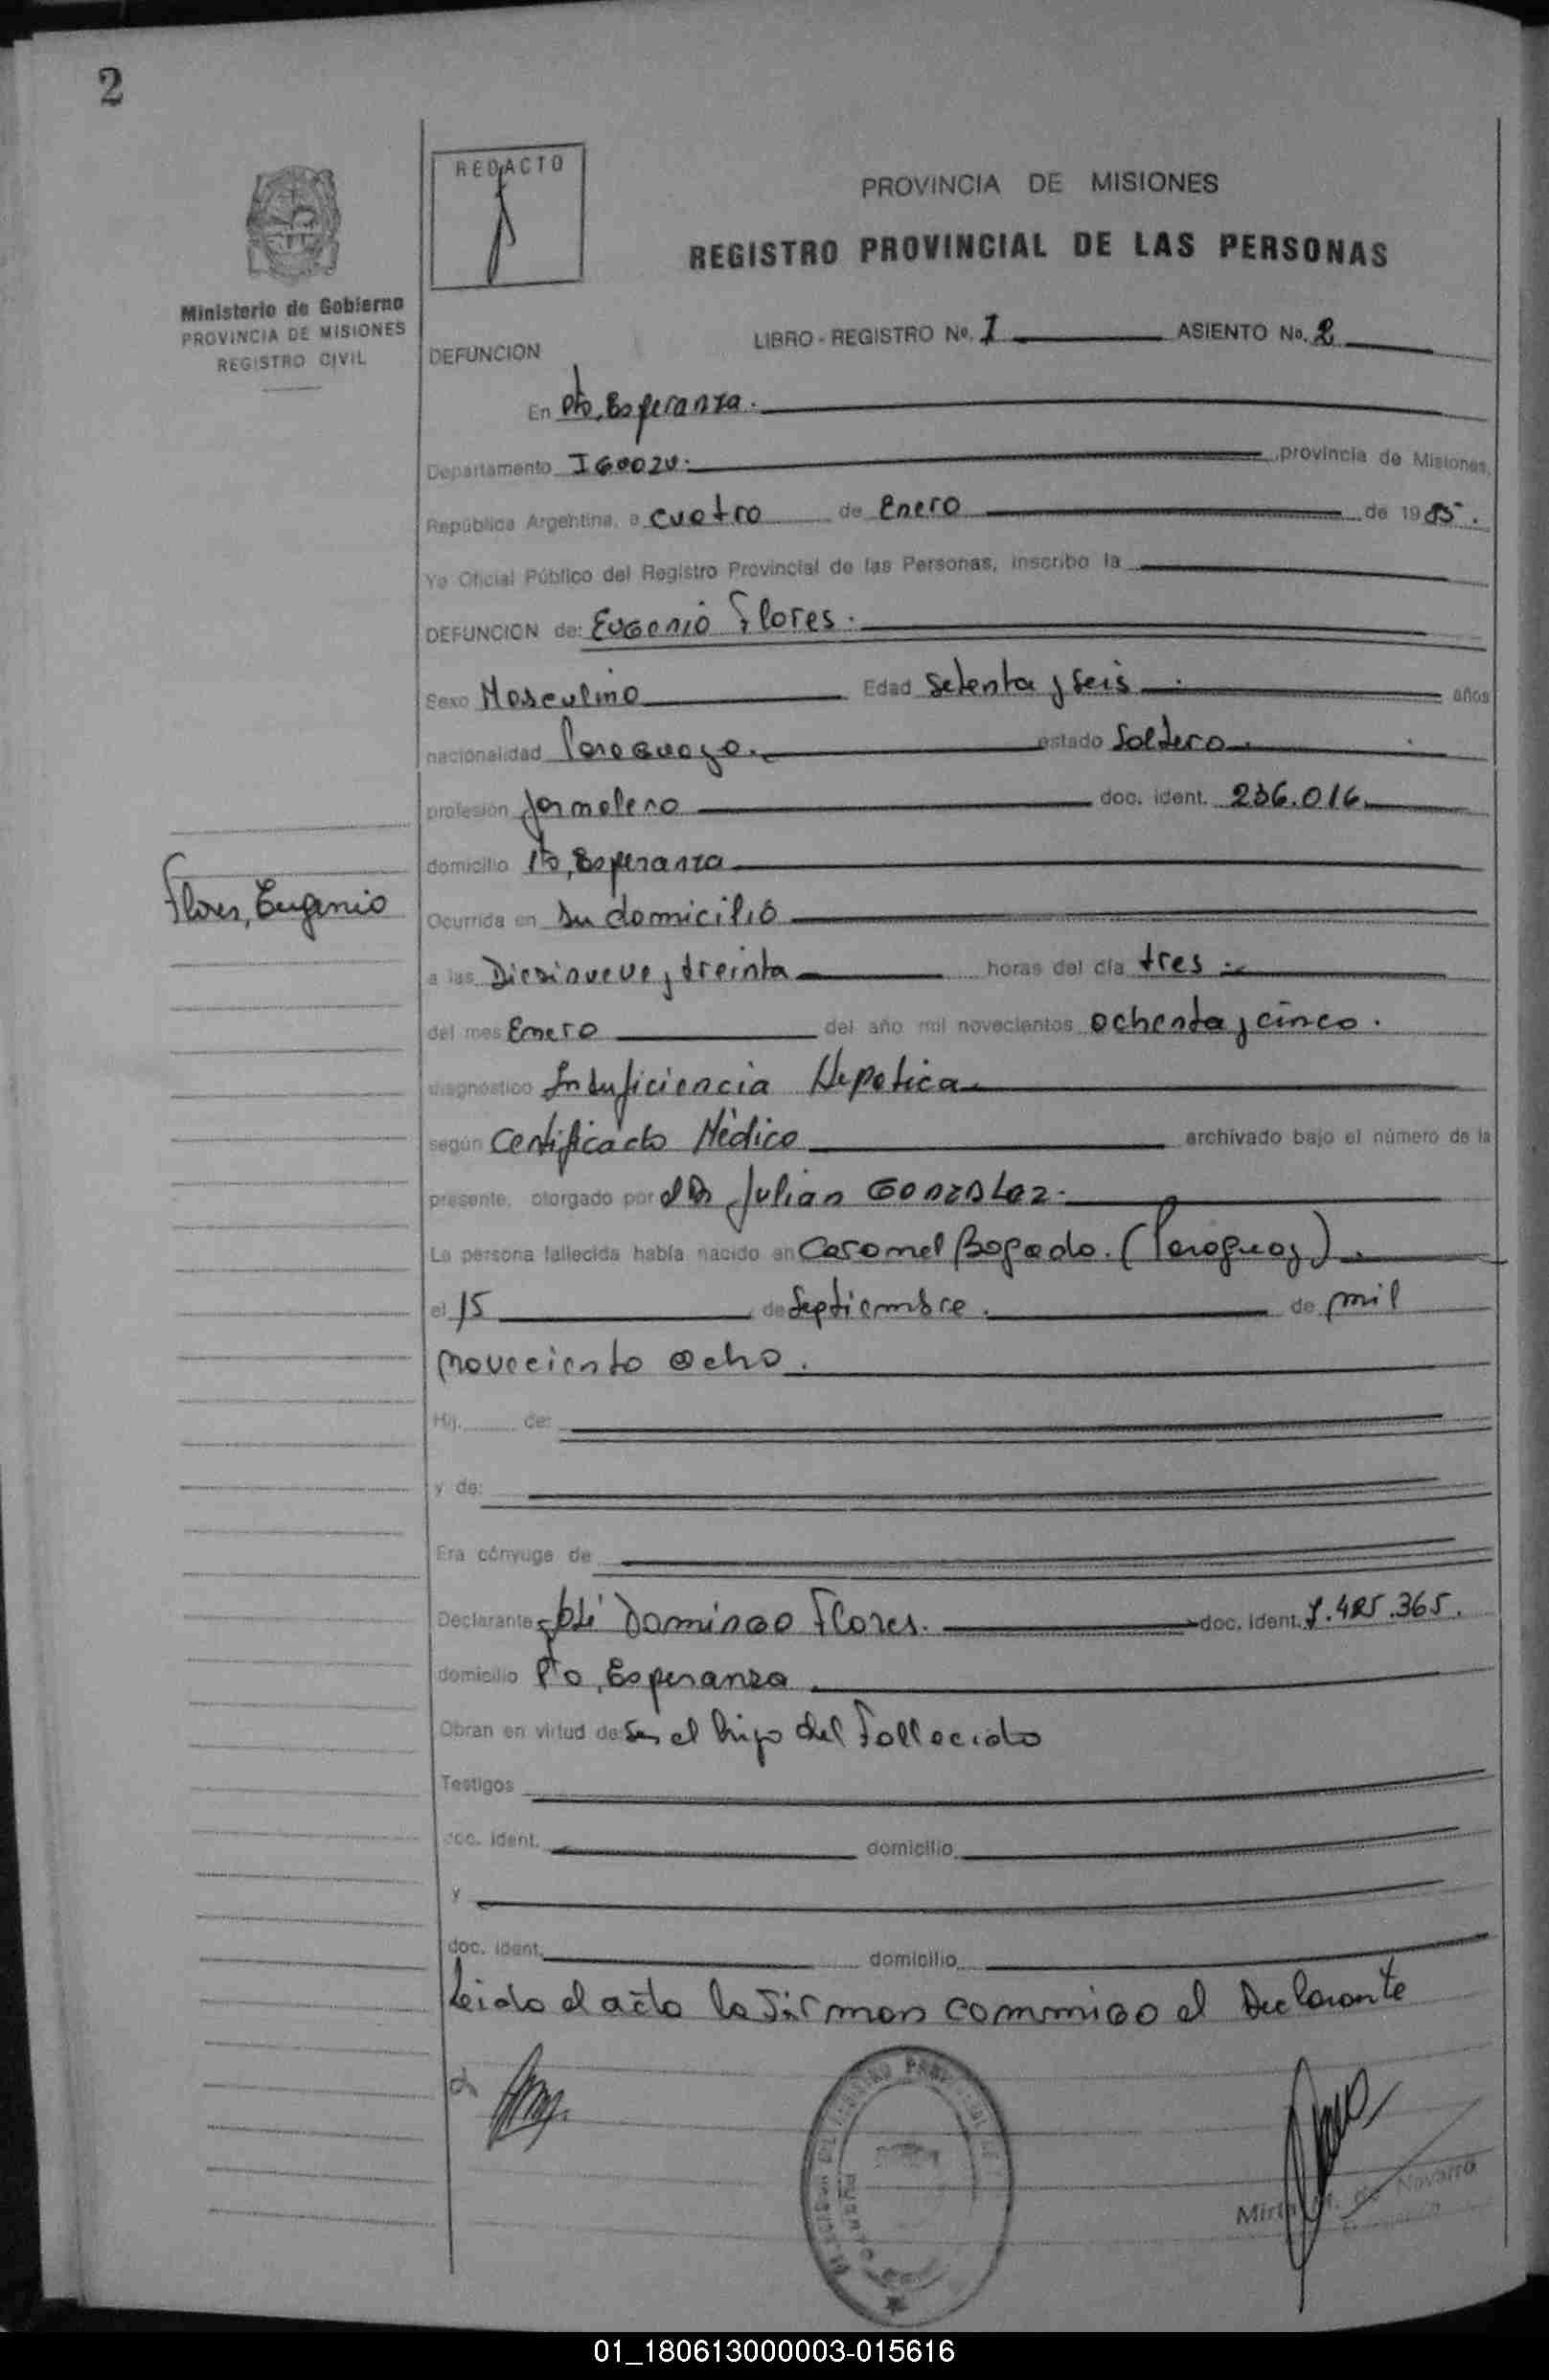 2
REDACTO
PROVINCIA DE MISIONES
REGISTRO PROVINCIAL DE LAS PERSONAS
Ministerio de Gobierno
PROVINCIA DE MISIONES
REGISTRO CIVIL
LIBRO - REGISTRO No. 1 ASIENTO No. 2
DEFUNCION
En Pto, Esperanza.
Departamento IGUAZU. provincia de Misiones,
República Argentina, a cuatro de Enero de 1985.
Yo Oficial Público del Registro Provincial de las Personas, inscribo la
DEFUNCION de: Eugenio Flores.
Sexo Masculino Edad setenta y seis años
nacionalidad Paraguayo. estado Soltero.
profesión Jornalero doc. ident. 236.016
domicilio Pto, Esperanza
Flores, Eugenio
Ocurrida en su domicilio
a las Diesinueve y treinta horas del día tres
del mes Enero del año mil novecientos ochenta y cinco.
diagnóstico Insuficiencia Hepatica
según Certificado Médico archivado bajo el número de la
presente, otorgado por el Dr Julian Gonzalez.
La persona fallecida había nacido en Coronel Bogado. (Paraguay).
el 15 de Septiembre. de mil
noveciento ocho.
Hij de:
y de:
Era cónyuge de
Declarante José Domingo Flores. doc. ident. 7.485.365.
domicilio Pto, Esperanza
Obran en virtud de Ser el hijo del Fallecido
Testigos
doc. ident. domicilio
y
doc. ident. domicilio
Leido el acto la Firman conmigo el Declarante
Navarro
01_180613000003-015616